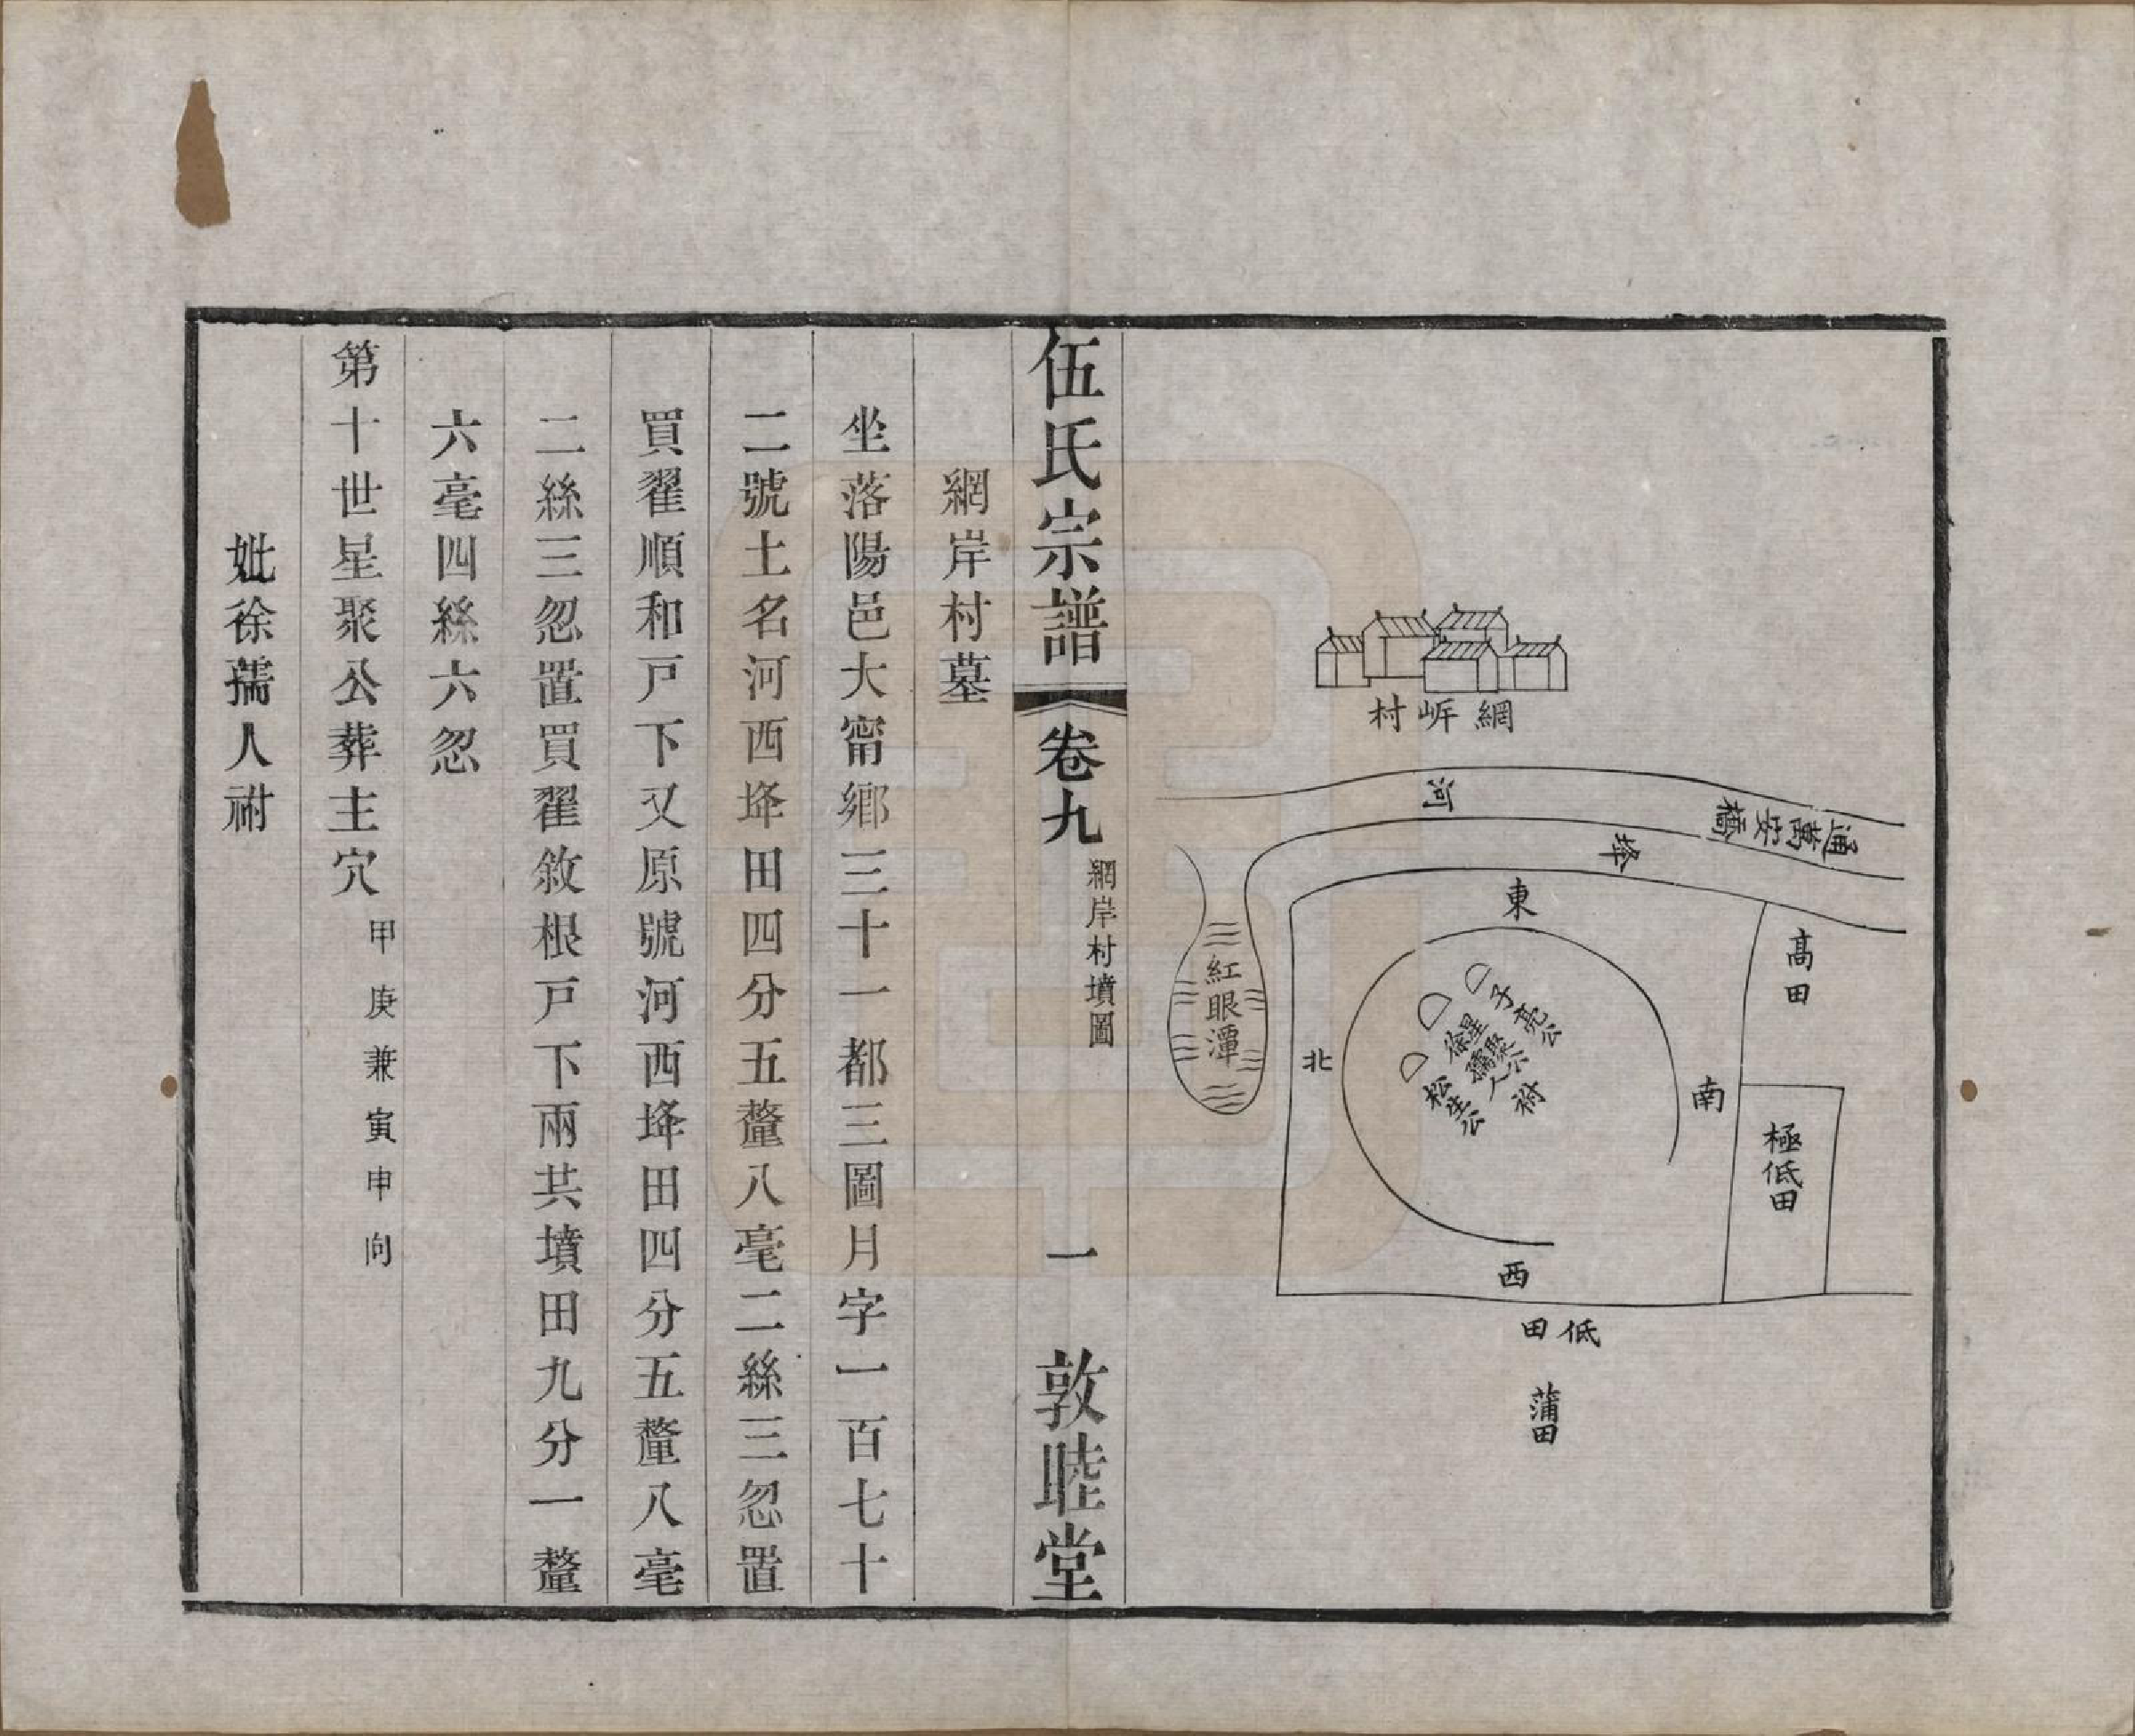 網岍村
河
通萬安橋
埄
東
高田
子亮公
星聚公
徐孺人祔
松生公
紅眼潭
北
南
極低田
西
低田
蒲田
伍氏宗譜
卷九
網岸村墳圖
一
敦睦堂
網岸村墓
坐落陽邑大甯鄉三十一都三圖月字一百七十
二號土名河西埄田四分五釐八毫二絲三忽置
買翟順和戸下又原號河西埄田四分五釐八毫
二絲三忽置買翟敘根戸下兩共墳田九分一釐
六毫四絲六忽
第十世星聚公葬主穴甲庚兼寅申向
妣徐孺人祔